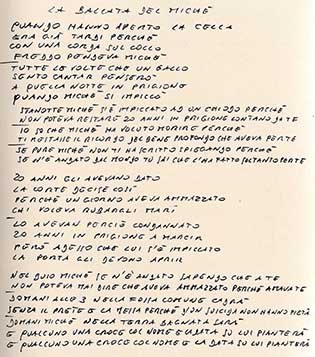 LA BALLATA DEL MICHÉ
QUANDO HANNO APERTO LA CELLA
ERA GIÀ TARDI PERCHÉ
CON UNA CORDA SUL COLLO
FREDDO PENDEVA MICHÉ
TUTTE LE VOLTE CHE UN GALLO
SENTO CANTAR PENSERÒ
A QUELLA NOTTE IN PRIGIONE
QUANDO MICHÉ SI IMPICCÒ
STANOTTE MICHÉ S'È IMPICCATO AD UN CHIODO PERCHÉ
NON POTEVA RESTARE 20 ANNI IN PRIGIONE LONTANO DA TE
IO SO CHE MICHÉ HA VOLUTO MORIRE PERCHÉ
TI RESTASSE IL RICORDO DEL BENE PROFONDO CHE AVEVA PER TE
SE PURE MICHÉ NON TI HA SCRITTO SPIEGANDO PERCHÉ
SE N'È ANDATO DAL MONDO TU SAI CHE L'HA FATTO SOLTANTO PER TE
20 ANNI GLI AVEVANO DATO
LA CORTE DECISE COSÌ
PERCHÉ UN GIORNO AVEVA AMMAZZATO
CHI VOLEVA RUBARGLI MARÌ
LO AVEVAN PERCIÒ CONDANNATO
20 ANNI IN PRIGIONE A MARCIR
PERÒ ADESSO CHE LUI S'È IMPICCATO
LA PORTA GLI DEVONO APRIR
NEL BUIO MICHÉ SE N'È ANDATO SAPENDO CHE A TE
NON POTEVA MAI DIRE CHE AVEVA AMMAZZATO PERCHÉ AMAVA TE
DOMANI ALLE 3 NELLA FOSSA COMUNE CADRÀ
SENZA IL PRETE E LA MESSA PERCHÉ D'UN SUICIDA NON HANNO PIETÀ
DOMANI MICHÉ NELLA TERRA BAGNATA SARÀ
E QUALCUNO UNA CROCE COL NOME E LA DATA SU LUI PIANTERÀ
E QUALCUNO UNA CROCE COL NOME E LA DATA SU LUI PIANTERÀ